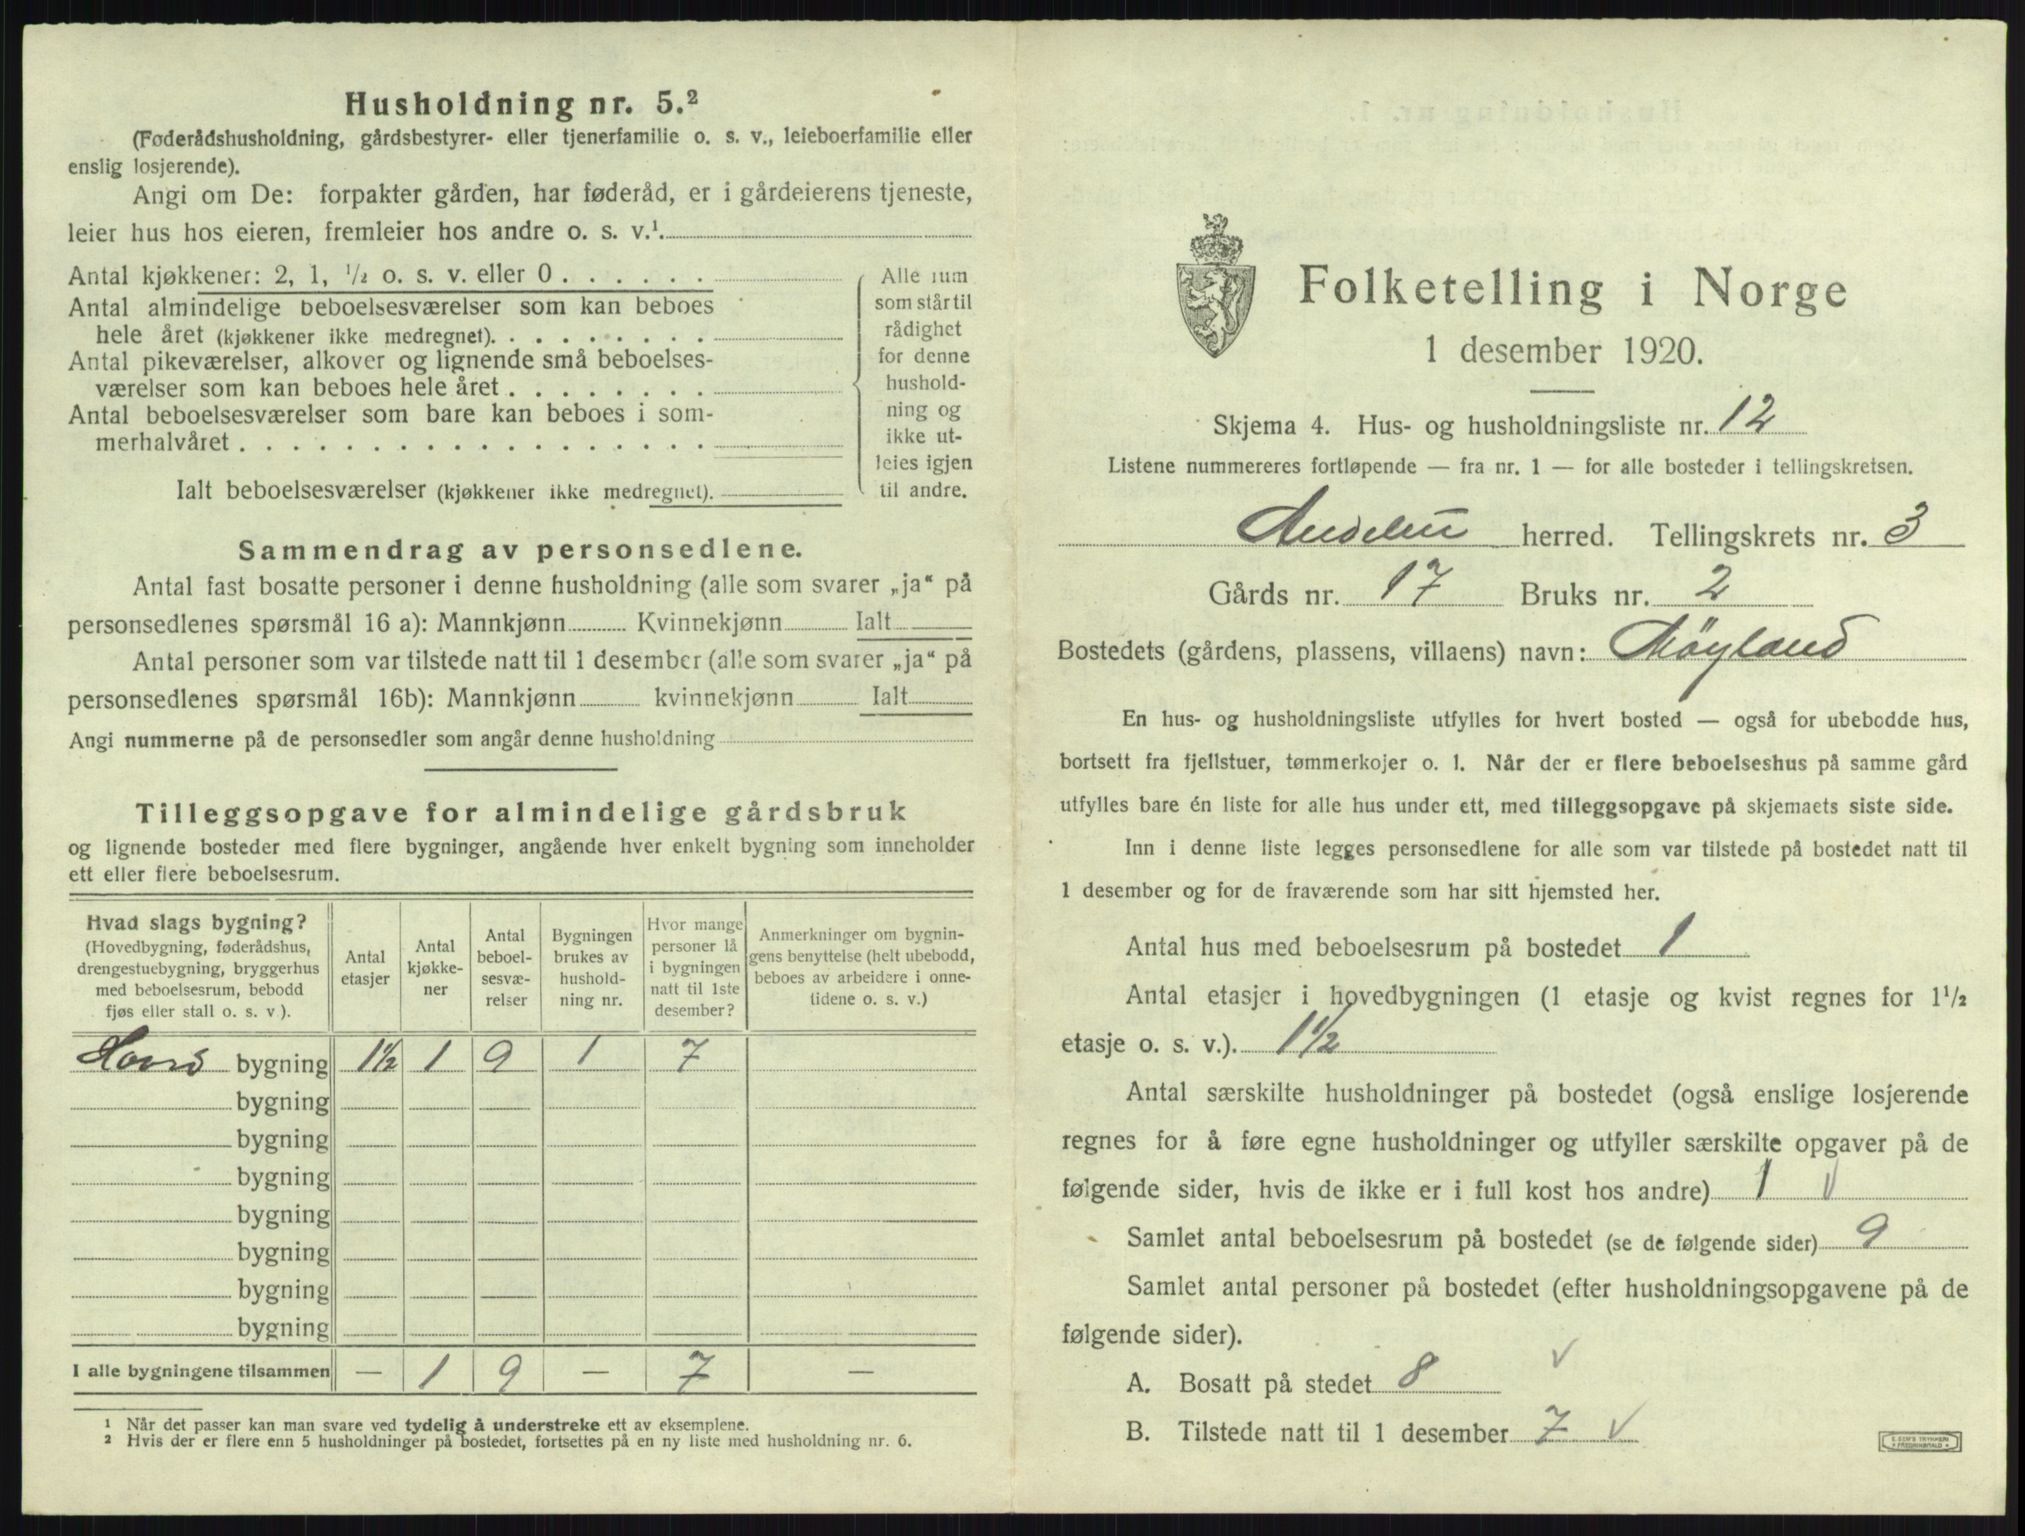 Husholdning nr. 5.²
(Føderådshusholdning, gårdsbestyrer- eller tjenerfamilie o. s. v., leieboerfamilie eller
enslig losjerende).
Angi om De: forpakter gården, har føderåd, er i gårdeierens tjeneste,
leier hus hos eieren, fremleier hos andre o. s. v.¹.
Antal kjøkkener: 2, 1, ½ o. s. v. eller 0 . . . . . .
Antal almindelige beboelsesværelser som kan beboes
hele året (kjøkkener ikke medregnet). . . . . . . . .
Antal pikeværelser, alkover og lignende små beboelses-
værelser som kan beboes hele året . . . . . . . .
Antal beboelsesværelser som bare kan beboes i som-
merhalvåret . . . . . . . . . . . . . . . . . .
Ialt beboelsesværelser (kjøkkener ikke medregnet).
Alle rum
som står til
rådighet
for denne
hushold-
ning og
ikke ut-
leies igjen
til andre.
Sammendrag av personsedlene.
Antal fast bosatte personer i denne husholdning (alle som svarer „ja“ på
personsedlenes spørsmål 16 a): Mannkjønn Kvinnekjønn Ialt
Antal personer som var tilstede natt til 1 desember (alle som svarer „ja“ på
personsedlenes spørsmål 16b): Mannkjønn kvinnekjønn Ialt
Angi nummerne på de personsedler som angår denne husholdning
Tilleggsopgave for almindelige gårdsbruk
og lignende bosteder med flere bygninger, angående hver enkelt bygning som inneholder
ett eller flere beboelsesrum.
Hvad slags bygning?
(Hovedbygning, føderådshus,
drengestuebygning, bryggerhus
med beboelsesrum, bebodd
fjøs eller stall o. s. v ).
Antal
etasjer
Antal
kjøkke-
ner
Antal
beboel-
sesvæ-
relser
Bygningen
brukes av
hushold-
ning nr.
Hvor mange
personer lå
i bygningen
natt til 1ste
desember?
Anmerkninger om bygnin-
gens benyttelse (helt ubebodd,
beboes av arbeidere i onne-
tidene o. s. v.)
Hoved bygning 1½ 1 9 1 7
bygning
bygning
bygning
bygning
bygning
bygning
bygning
I alle bygningene tilsammen — 1 9 — 7 —
¹ Når det passer kan man svare ved tydelig å understreke ett av eksemplene.
² Hvis der er flere enn 5 husholdninger på bostedet, fortsettes på en ny liste med husholdning nr. 6.
Folketelling i Norge
1 desember 1920.
Skjema 4. Hus- og husholdningsliste nr. 12
Listene nummereres fortløpende — fra nr. 1 — for alle bosteder i tellingskretsen.
Andebu herred. Tellingskrets nr. 3
Gårds nr. 17 Bruks nr. 2
Bostedets (gårdens, plassens, villaens) navn: Møyland
En hus- og husholdningsliste utfylles for hvert bosted — også for ubebodde hus,
bortsett fra fjellstuer, tømmerkojer o. l. Når der er flere beboelseshus på samme gård
utfylles bare én liste for alle hus under ett, med tilleggsopgave på skjemaets siste side.
Inn i denne liste legges personsedlene for alle som var tilstede på bostedet natt til
1 desember og for de fraværende som har sitt hjemsted her.
Antal hus med beboelsesrum på bostedet 1
Antal etasjer i hovedbygningen (1 etasje og kvist regnes for 1½
etasje o. s. v.). 1½
Antal særskilte husholdninger på bostedet (også enslige losjerende
regnes for å føre egne husholdninger og utfyller særskilte opgaver på de
følgende sider, hvis de ikke er i full kost hos andre) 1 v
Samlet antal beboelsesrum på bostedet (se de følgende sider) 9
Samlet antal personer på bostedet (efter husholdningsopgavene på de
følgende sider).
A. Bosatt på stedet 8 v
B. Tilstede natt til 1 desember 7 v